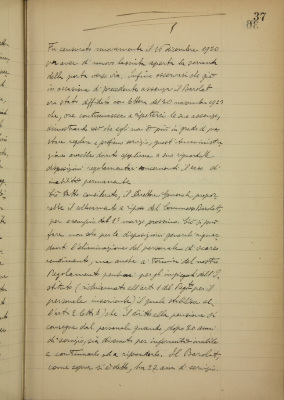 37
Fu censurato nuovamente il 16 Dicembre 1920
per aver di nuovo lasciata aperta la
della porta verso via, infine osservasi che già
in occasione di precedente assenza il Barolat
era stato diffidato con lettera del 20 novembre 1923
che, ove continuassero a ripetersi le sue assenze,
dimostrando ciò che egli non è più in grado di
stare regolare e proficuo servizio, quest'Amministra-
zione avrebbe dovuto applicare a suo riguardo le
disposizioni regolamentari concernenti il caso di
inabilità permanente.
Ciò detto considerato, il Direttore Generale propor-
rebbe il collocamento a riposo del Commesso Barolat,
per esempio dal 1° marzo prossimo. Ciò si può
fare non solo per le disposizioni generali riguar-
danti l'eliminazione del personale di scarso
rendimento, ma anche a termini del nostro
Regolamento pensioni per gli impiegati dell'I-
stituto (richiamato all'art. 1 del Regto per il
personale inserviente) il quale stabilisce al-
l'art. 2 lett. b) che il diritto alla pensione si
consegue dal personale quando, dopo 20 anni
di servizio, sia divenuto per infermità inabile
a continuarlo od a riprenderlo. Il Barolat,
come sopra si è detto, ha 22 anni di servizio.